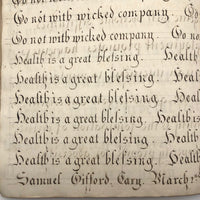 Go not with wicked company. Go no
Go not with wicked company. Go no
Health is a great blessing. Health
Health is a great blessing. Health
Health is a great blessing. Health
Health is a great blessing. Health
Health is a great blessing. Health
Health is a great blessing. Health
Samuel Gifford, Cary. March 1st